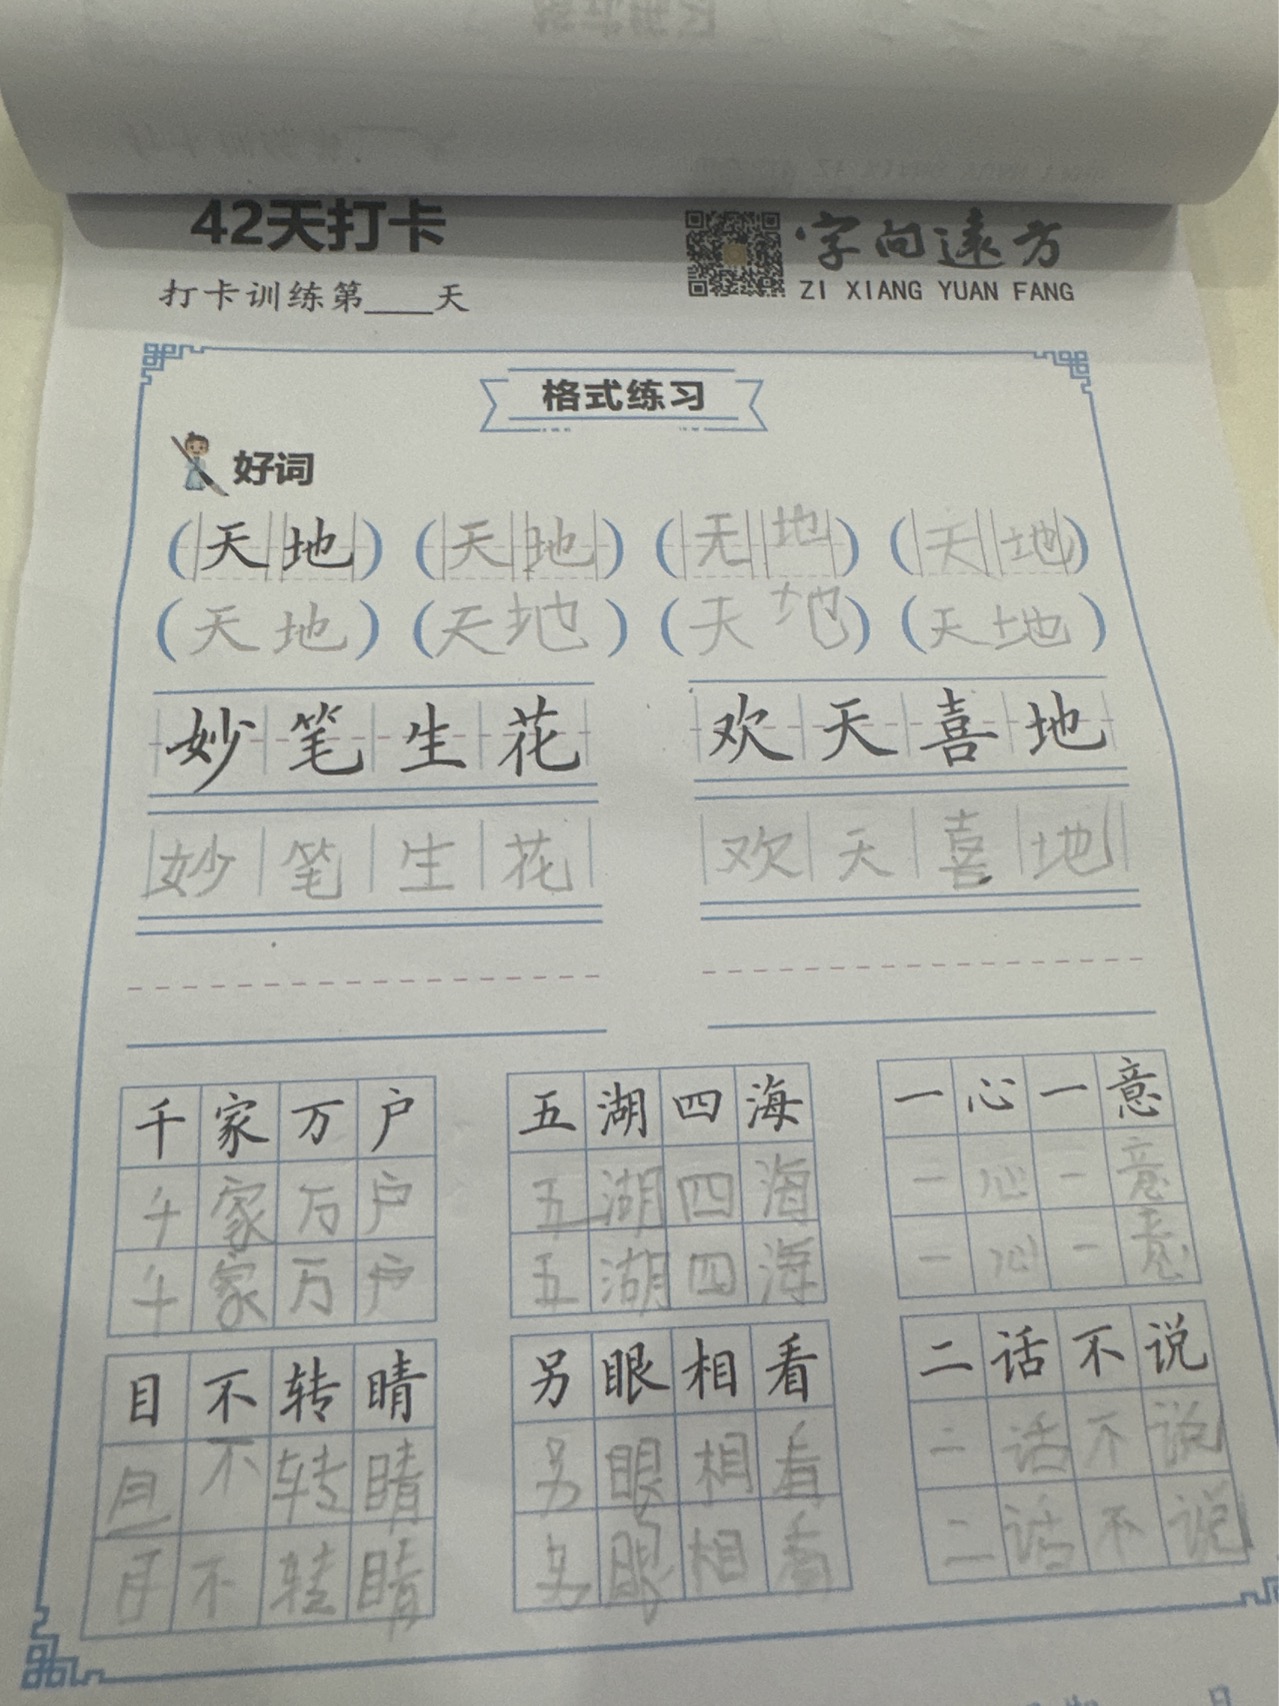 42天打卡
字向远方
打卡训练第____天
ZI XIANG YUAN FANG
格式练习
好词
(天地) (天地) (天地) (天地)
(天地) (天地) (天地) (天地)
妙笔生花 欢天喜地
妙笔生花 欢天喜地
千家万户 五湖四海 一心一意
千家万户 五湖四海 一心一意
千家万户 五湖四海 一心一意
目不转睛 另眼相看 二话不说
目不转睛 另眼相看 二话不说
目不转睛 另眼相看 二话不说